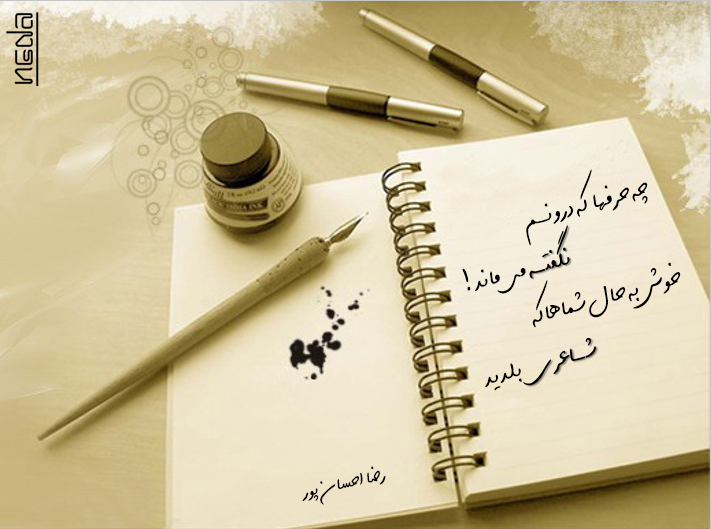 چه حرفها که درونم
نگفته می ماند!
خوش به حال شماها که
شاعری بلدید
رضا احسان پور
INDIA INK